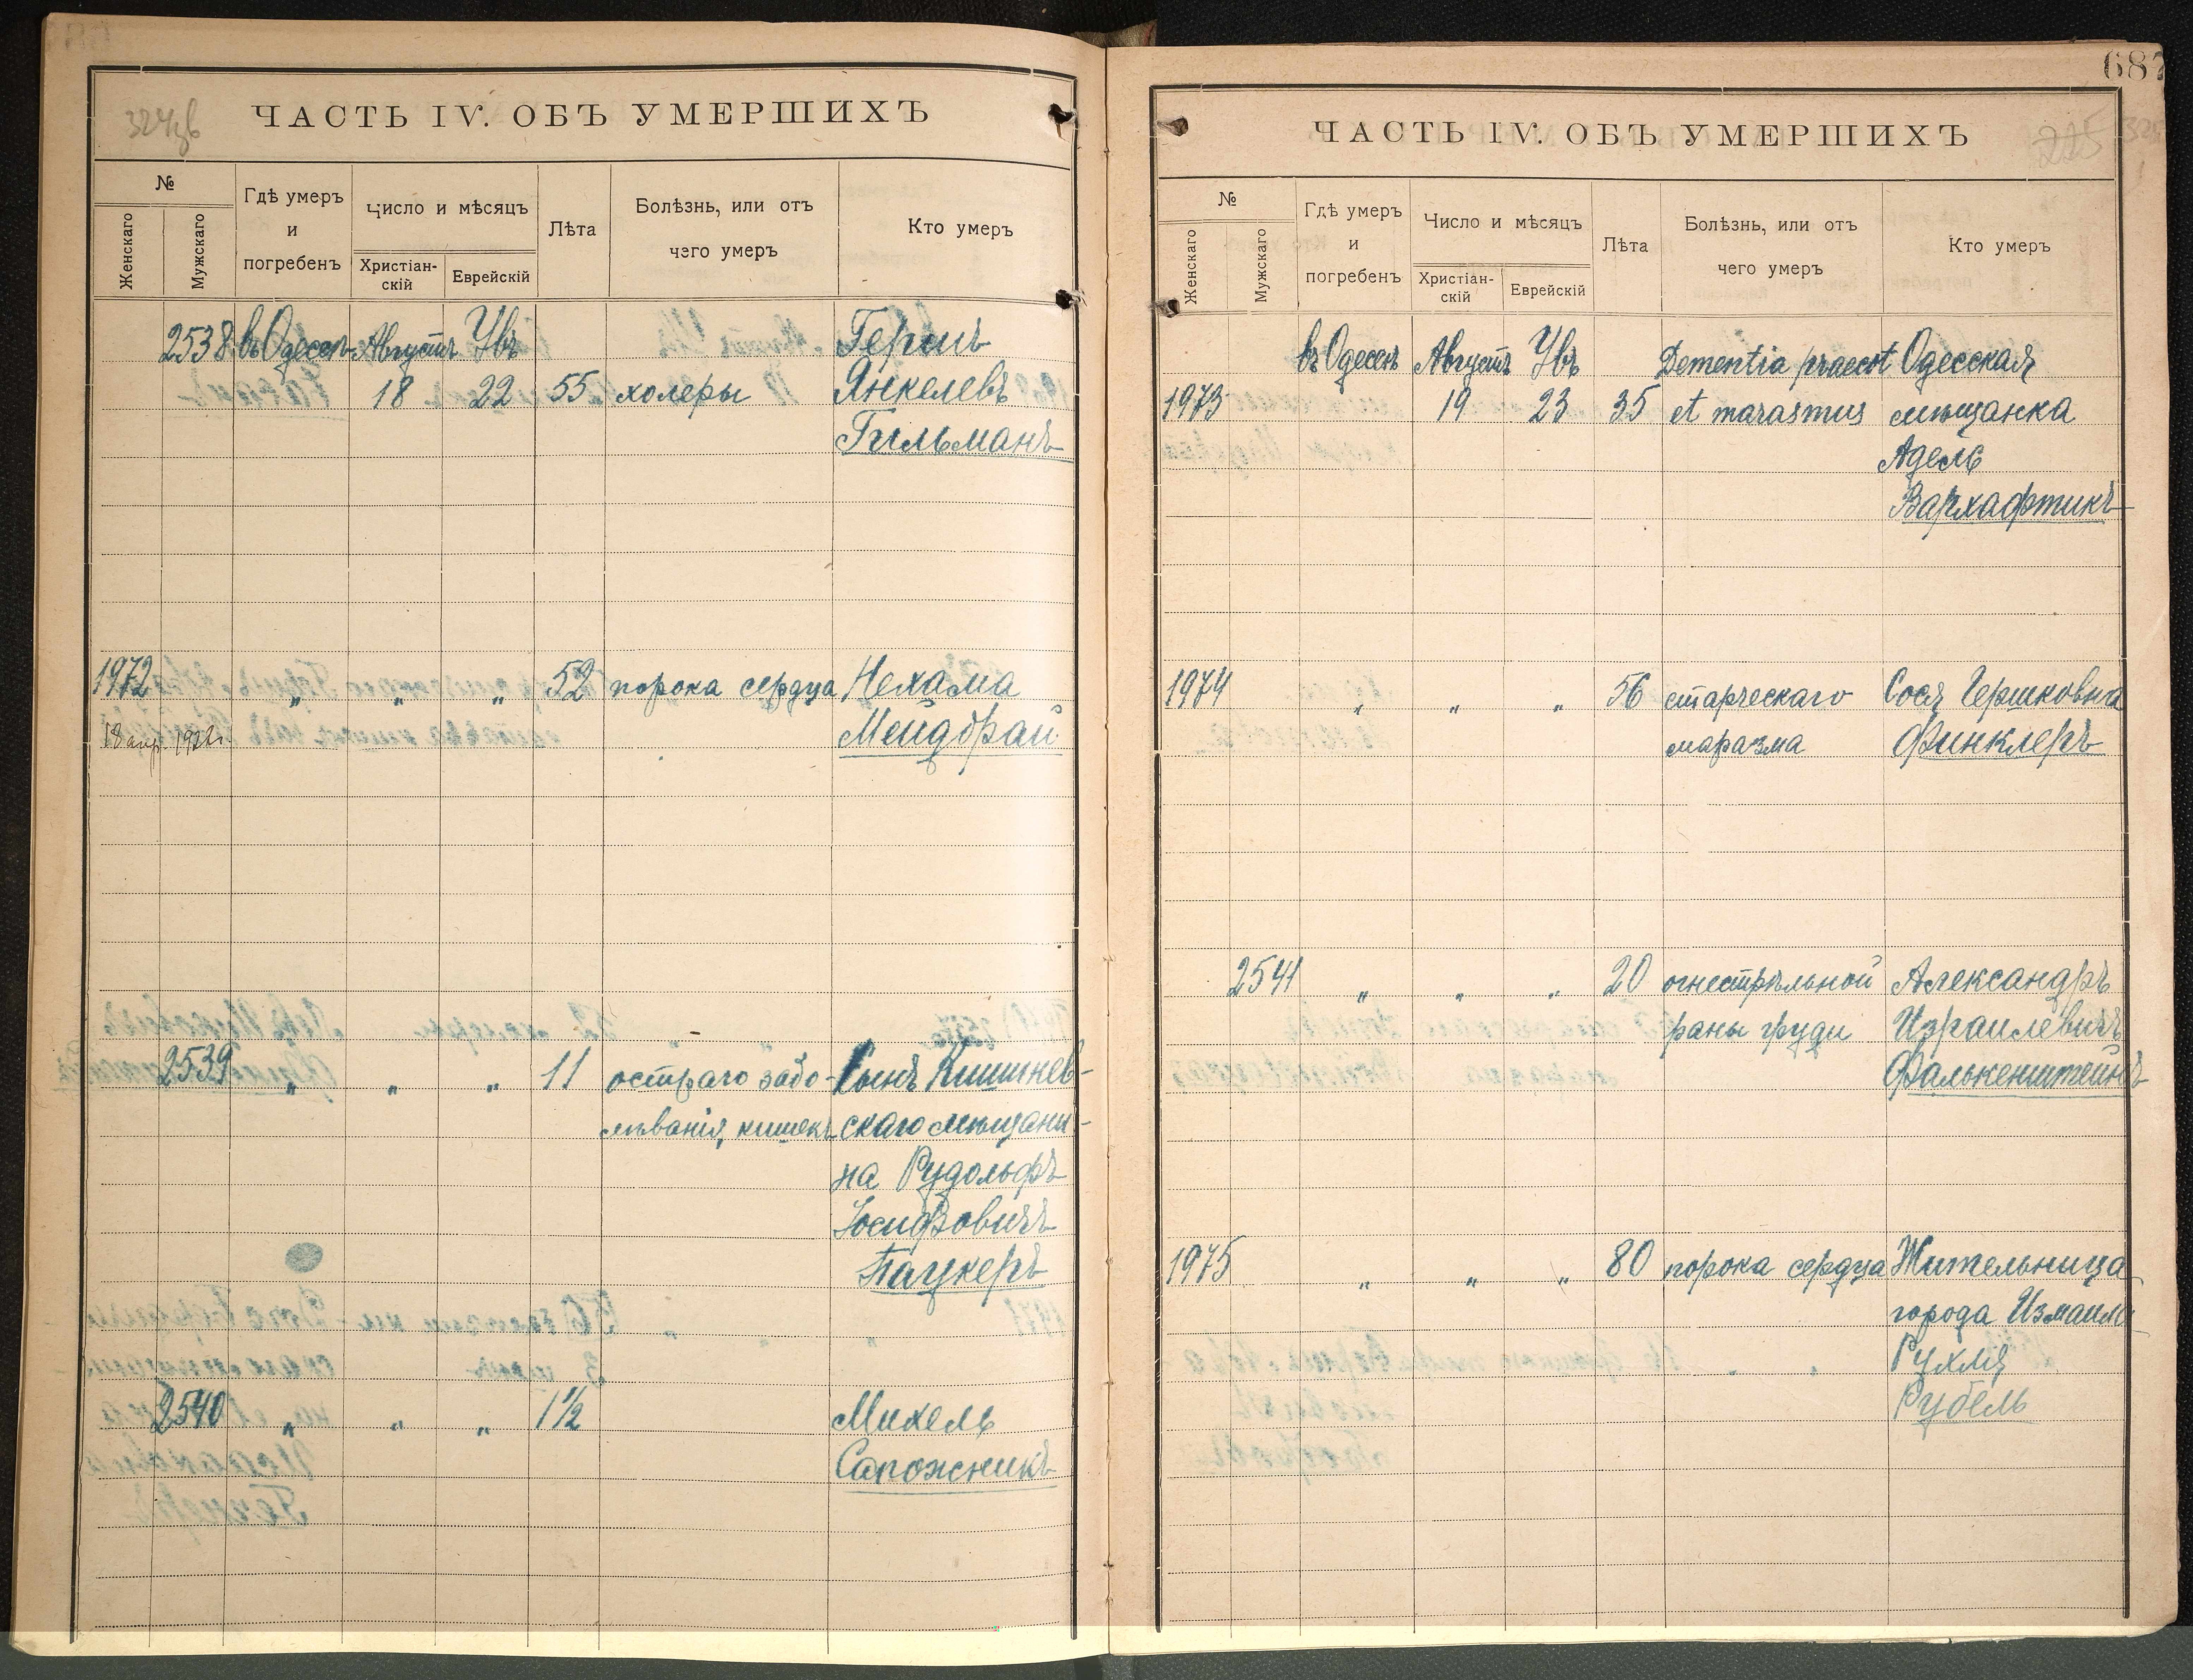 324зв
ЧАСТЬ IV. ОБЪ УМЕРШИХЪ
№
Женскаго
Мужскаго
Гдѣ умеръ
и
погребенъ
Число и мѣсяцъ
Христіан-
скій
Еврейскій
Лѣта
Болѣзнь, или отъ
чего умеръ
Кто умеръ
2538 въ Одессѣ Августъ Увъ Гершъ
18 22 55 холеры Янкелевъ
Гильманъ
1972 " " " 52 порока сердца Нехама
18 апр. 1922 г. Мейдбрай
2539 " " " 11 остраго забо- Сынъ Кишинев-
лѣванія кишекъ скаго мѣщани-
на Рудольфъ
Іосифовичъ
Паукеръ
2540 " " " 1½ Михель
Сапожникъ
687
225
ЧАСТЬ IV. ОБЪ УМЕРШИХЪ
№
Женскаго
Мужскаго
Гдѣ умеръ
и
погребенъ
Число и мѣсяцъ
Христіан-
скій
Еврейскій
Лѣта
Болѣзнь, или отъ
чего умеръ
Кто умеръ
въ Одессѣ Августъ Увъ Dementia praecot Одесская
1973 19 23 35 et marasmus мѣщанка
Адель
Вархафтикъ
1974 " " " 56 старческаго Сося Гершковна
маразма Финклеръ
2541 " " " 20 огнестрѣльной Александръ
раны груди Израилевичъ
Фалькенштейнъ
1975 " " " 80 порока сердца Жительница
города Измаила
Рухля
Рубель